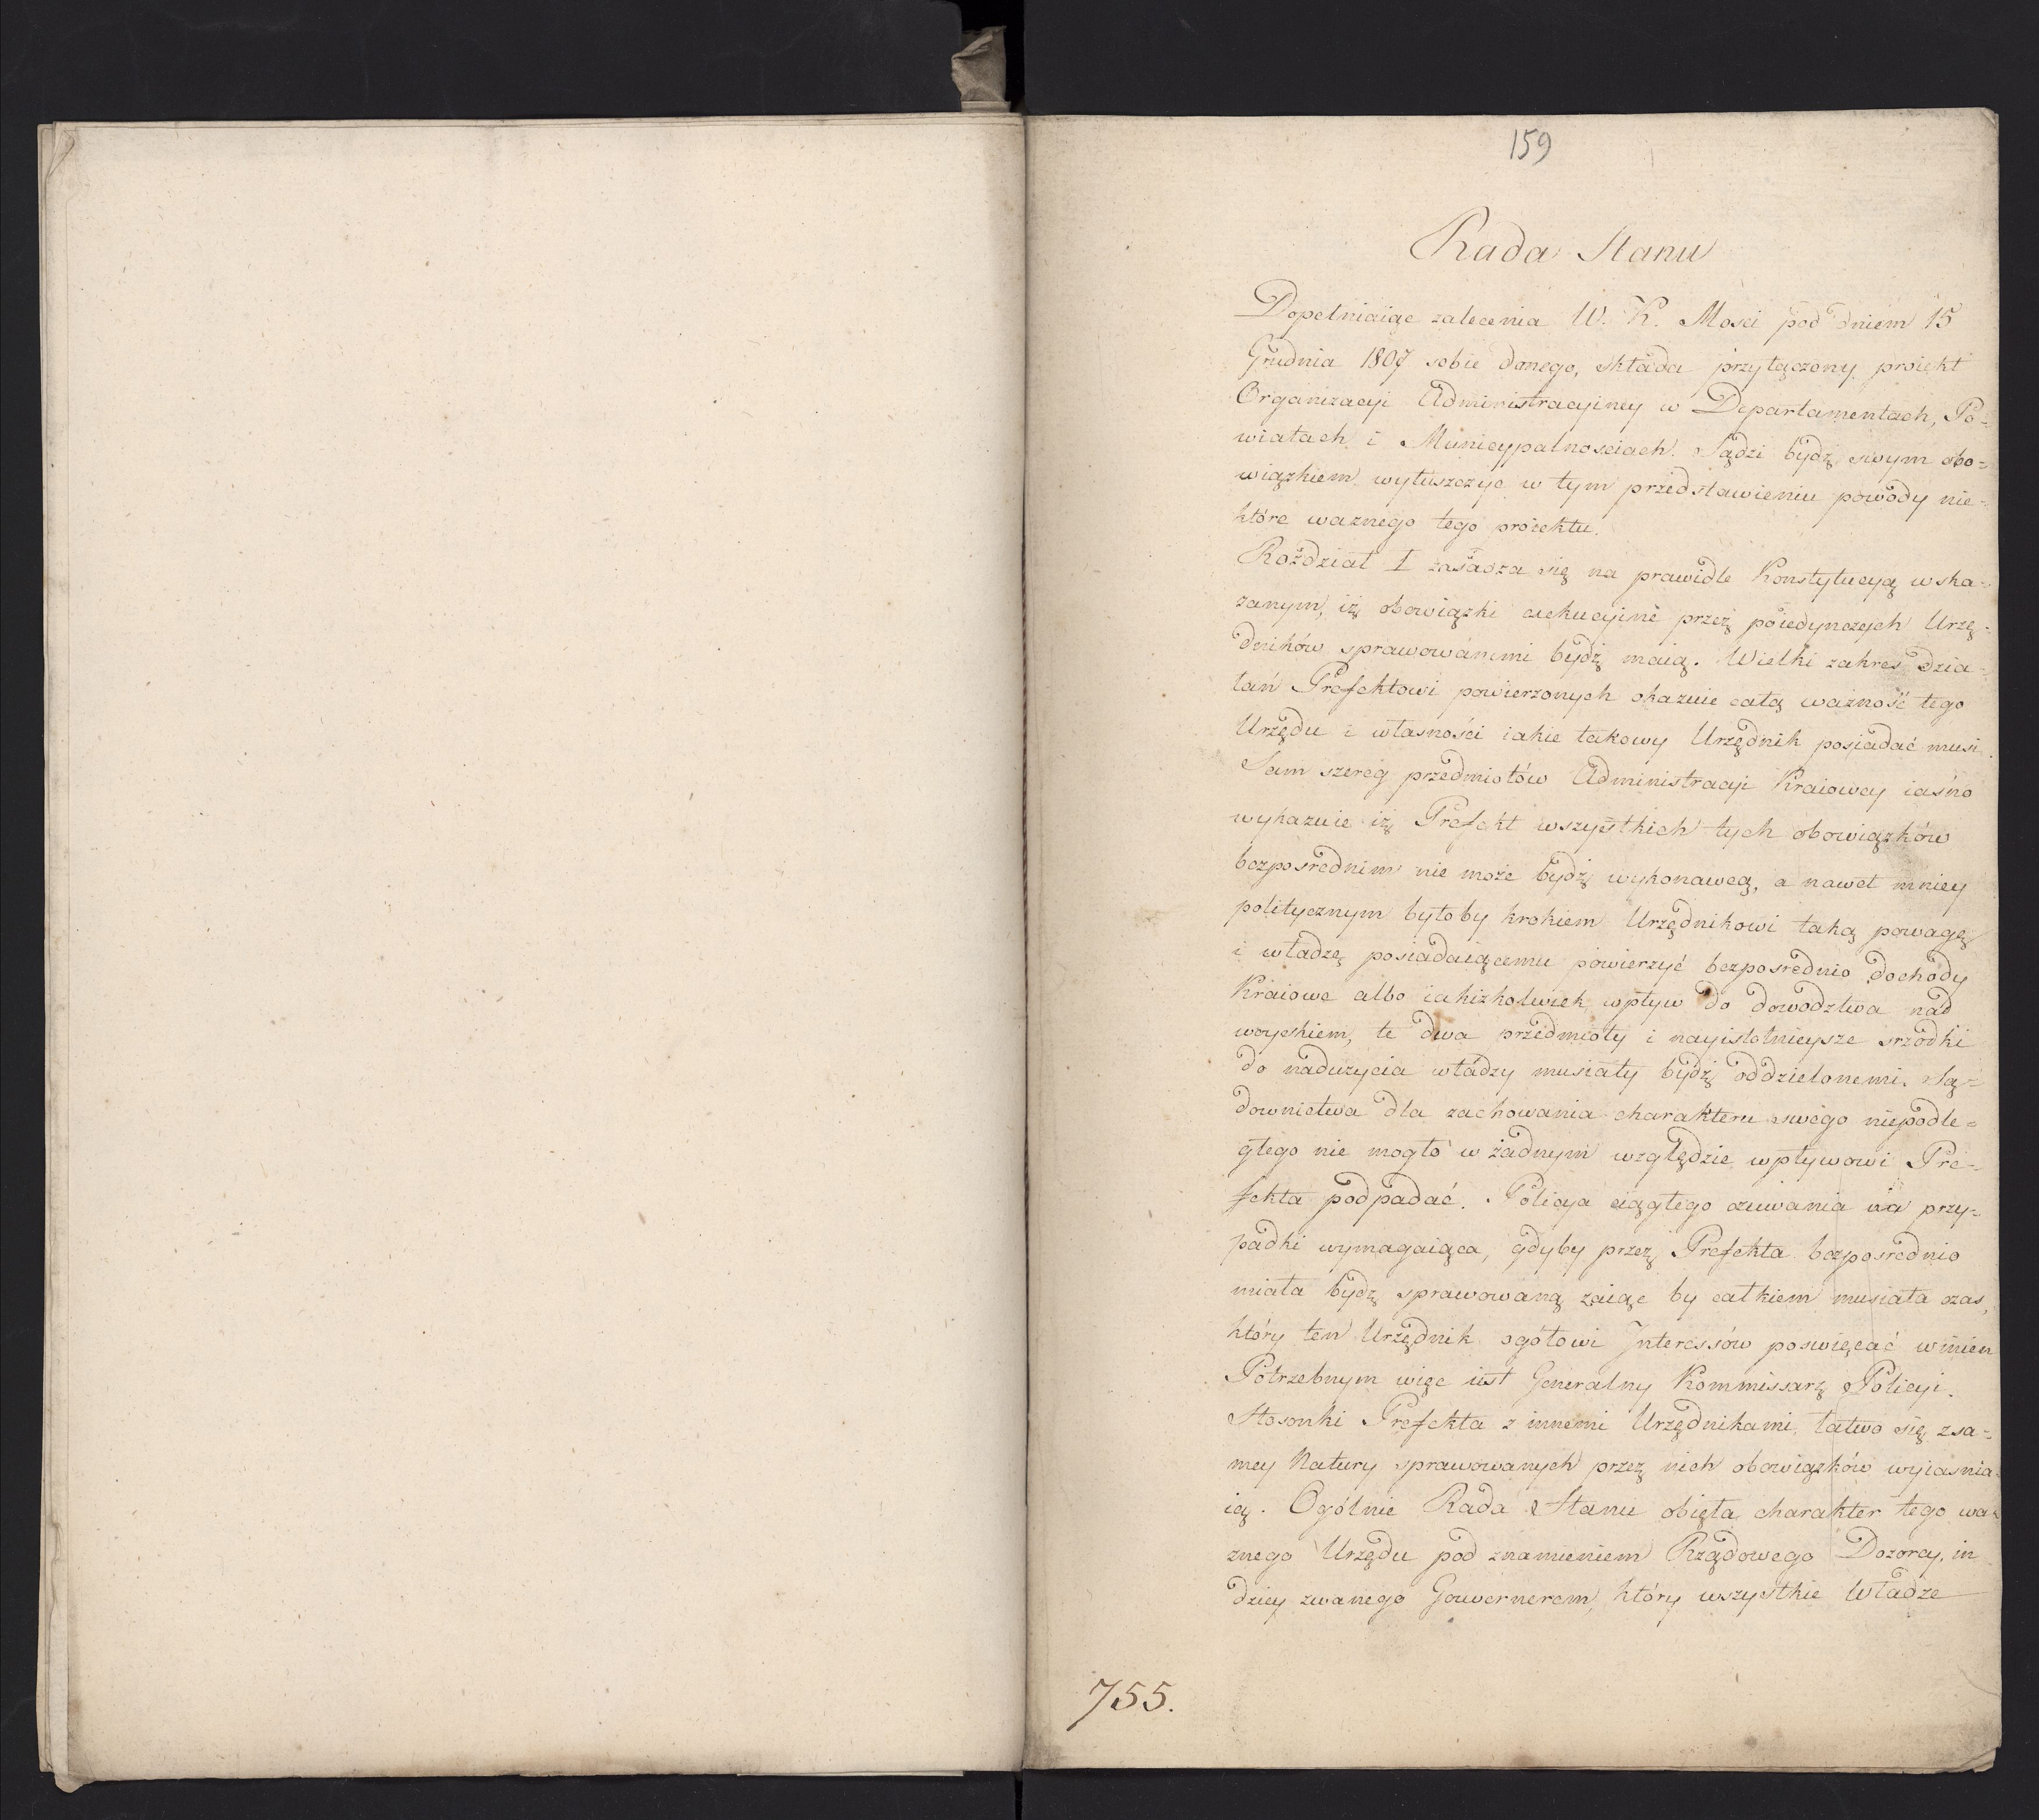 159
Rada Stanu
Dopełniaiąc zalecenia W. K. Mosci pod dniem 15
Grudnia 1807 sobie danego, składa przyłączony proiekt
Organizacyi Administracyiney w Departamentach, Po-
wiatach i Municypalnosciach. Sądzi bydz swym obo=
wiązkiem wyłuszczyc w tym przedstawieniu powody nie-
które waznego tego proiektu.
Rozdział I zasadza się na prawidle Konstytucyą wska-
zanym, iz obowiązki exekucyine przez poiedynczych Urzę-
dników sprawowanemi bydz maią. Wielki zakres dzia-
łań Prefektowi powierzonych okazuie całą ważność tego
Urzędu i własności iakie takowy Urzędnik posiadać musi.
Sam szereg przedmiotów Administracyi Kraiowey iaśno
wykazuie iz Prefekt wszystkich tych obowiązków
bezposrednim nie może bydz wykonawcą, a nawet mniey
politycznym byłoby krokiem Urzędnikowi taką powagę
i władzę posiadaiącemu powierzyć bezposrednio dochody
Kraiowe albo iakizkolwiek wpływ do dowodztwa nad
woyskiem, te dwa przedmioty i nayistotnieysze srzodki
do naduzycia władzy musiały bydz oddzielonemi. Są=
downictwa dla zachowania charakteru swego niepodle=
głego nie mogło w żadnym względzie wpływowi Pre-
fekta podpadać. Policya ciągłego czuwania na przy=
padki wymagaiąca, gdyby przez Prefekta bezposrednio
miała bydz sprawowaną zaiąc by całkiem musiała czas,
który ten Urzędnik ogołowi Interessów poswięcać winien
Potrzebnym więc iest Generalny Kommissarz Policyi.
Stosonki Prefekta z innemi Urzędnikami, łatwo się z sa=
mey Natury sprawowanych przez nich obowiązków wyiasnia-
ią. Ogólnie Rada Stanu obięła charakter tego wa=
znego Urzędu pod znamieniem Rządowego Dozorcy, in
dziey zwanego Gouvernerem, który wszystkie Władze
755.